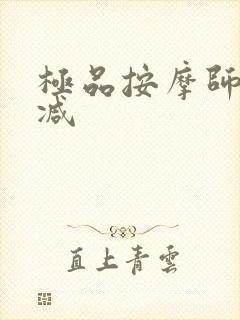 極品按摩師
减
直上青雲